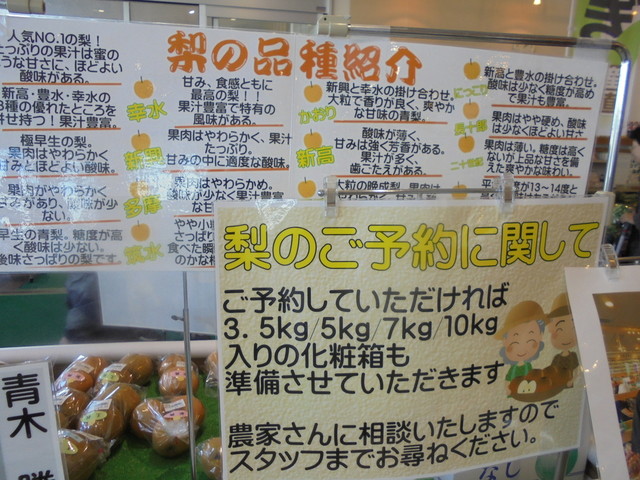 梨の品種紹介
人気NO.1の梨!
たっぷりの果汁は蜜の
ような甘さに、ほどよい
酸味がある。
新高・豊水・幸水の
3種の優れたところを
併せ持つ!果汁豊富。
極早生の梨。
果肉はやわらかく
甘みとほどよい酸味。
果肉がやわらかく
甘みがあり、酸味が少
ない。
早生の青梨。糖度が高
く酸味が少ない。
後味さっぱりの梨です。
幸水
甘み、食感ともに
最高の梨!
果汁豊富で特有の
風味がある。
果肉はやわらかく、果汁
たっぷり。
甘みの中に適度な酸味。
多摩
果肉はやわらかめ。
酸味が少なく果汁豊富
な甘
かおり
新興と幸水の掛け合わせ。
大粒で香りが良く、爽やか
な甘味の青梨。
新高
酸味が薄く、
甘みは強く芳香がある。
果汁が多く、
歯ごたえがある。
大粒の晩成梨。果肉は
にっこり
新高と豊水の掛け合わせ。
酸味は少なく糖度が高め
で果汁も豊富。
果肉はやや硬め、酸味
は少なくほどよい甘さ
果肉は薄い、糖度は高く
ないが上品な甘さを備
えた爽やかな味わい。
糖度が13~14度と
梨のご予約に関して
ご予約していただければ
3.5kg/5kg/7kg/10kg
入りの化粧箱も
準備させていただきます
農家さんに相談いたしますので
スタッフまでお尋ねください。
青木
なし